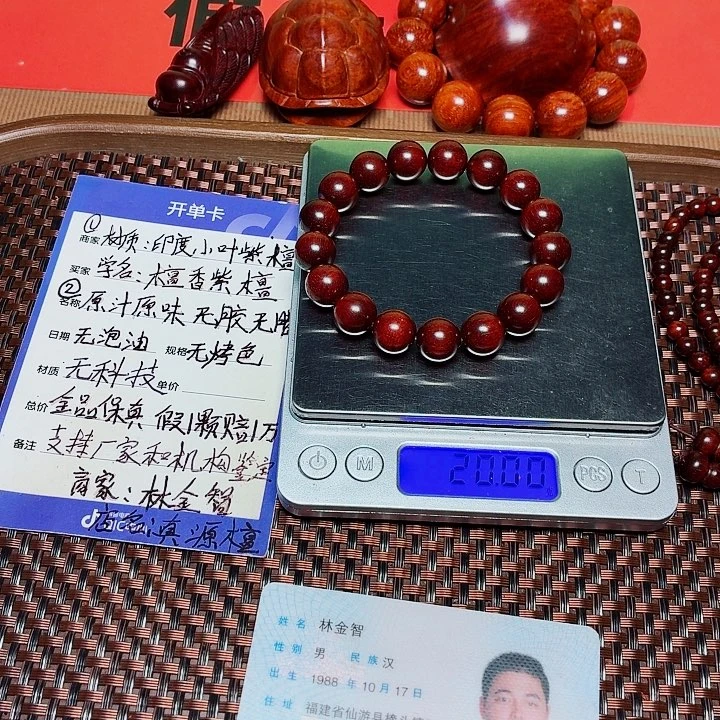 开单卡
① 商家 材质:印度小叶紫檀
买家 学名:檀香紫檀
② 名称 原汁原味 无胶无腊
日期 无泡油 规格 无烤色
材质 无科技 单价
总价 全品保真 假1颗赔1万
备注 支持厂家和机构鉴定
商家:林金智
店名:滇源檀
M
20.00
PCS
T
姓名 林金智
性别 男 民族 汉
出生 1988 年 10 月 17 日
住址 福建省仙游县榜头镇